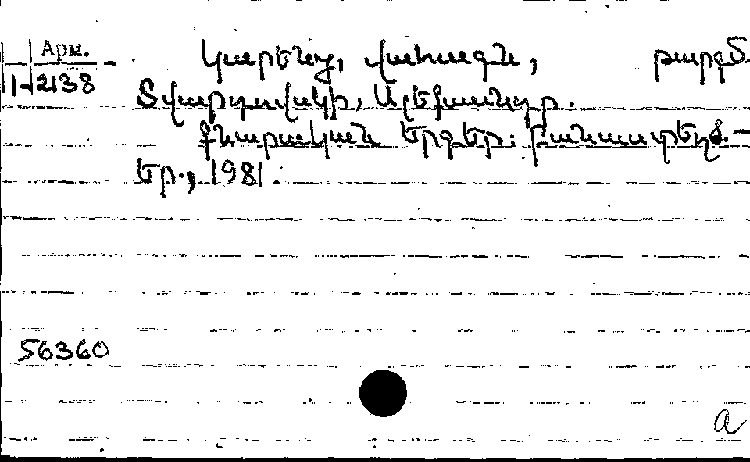 Арм.
1-2138
Կարենց, Վահագն, թարգմ.
Տվարդովսկի, Ալեքսանդր.
Քնարական երգեր: Բանաստեղծ. —
Եր., 1981.
56360
a